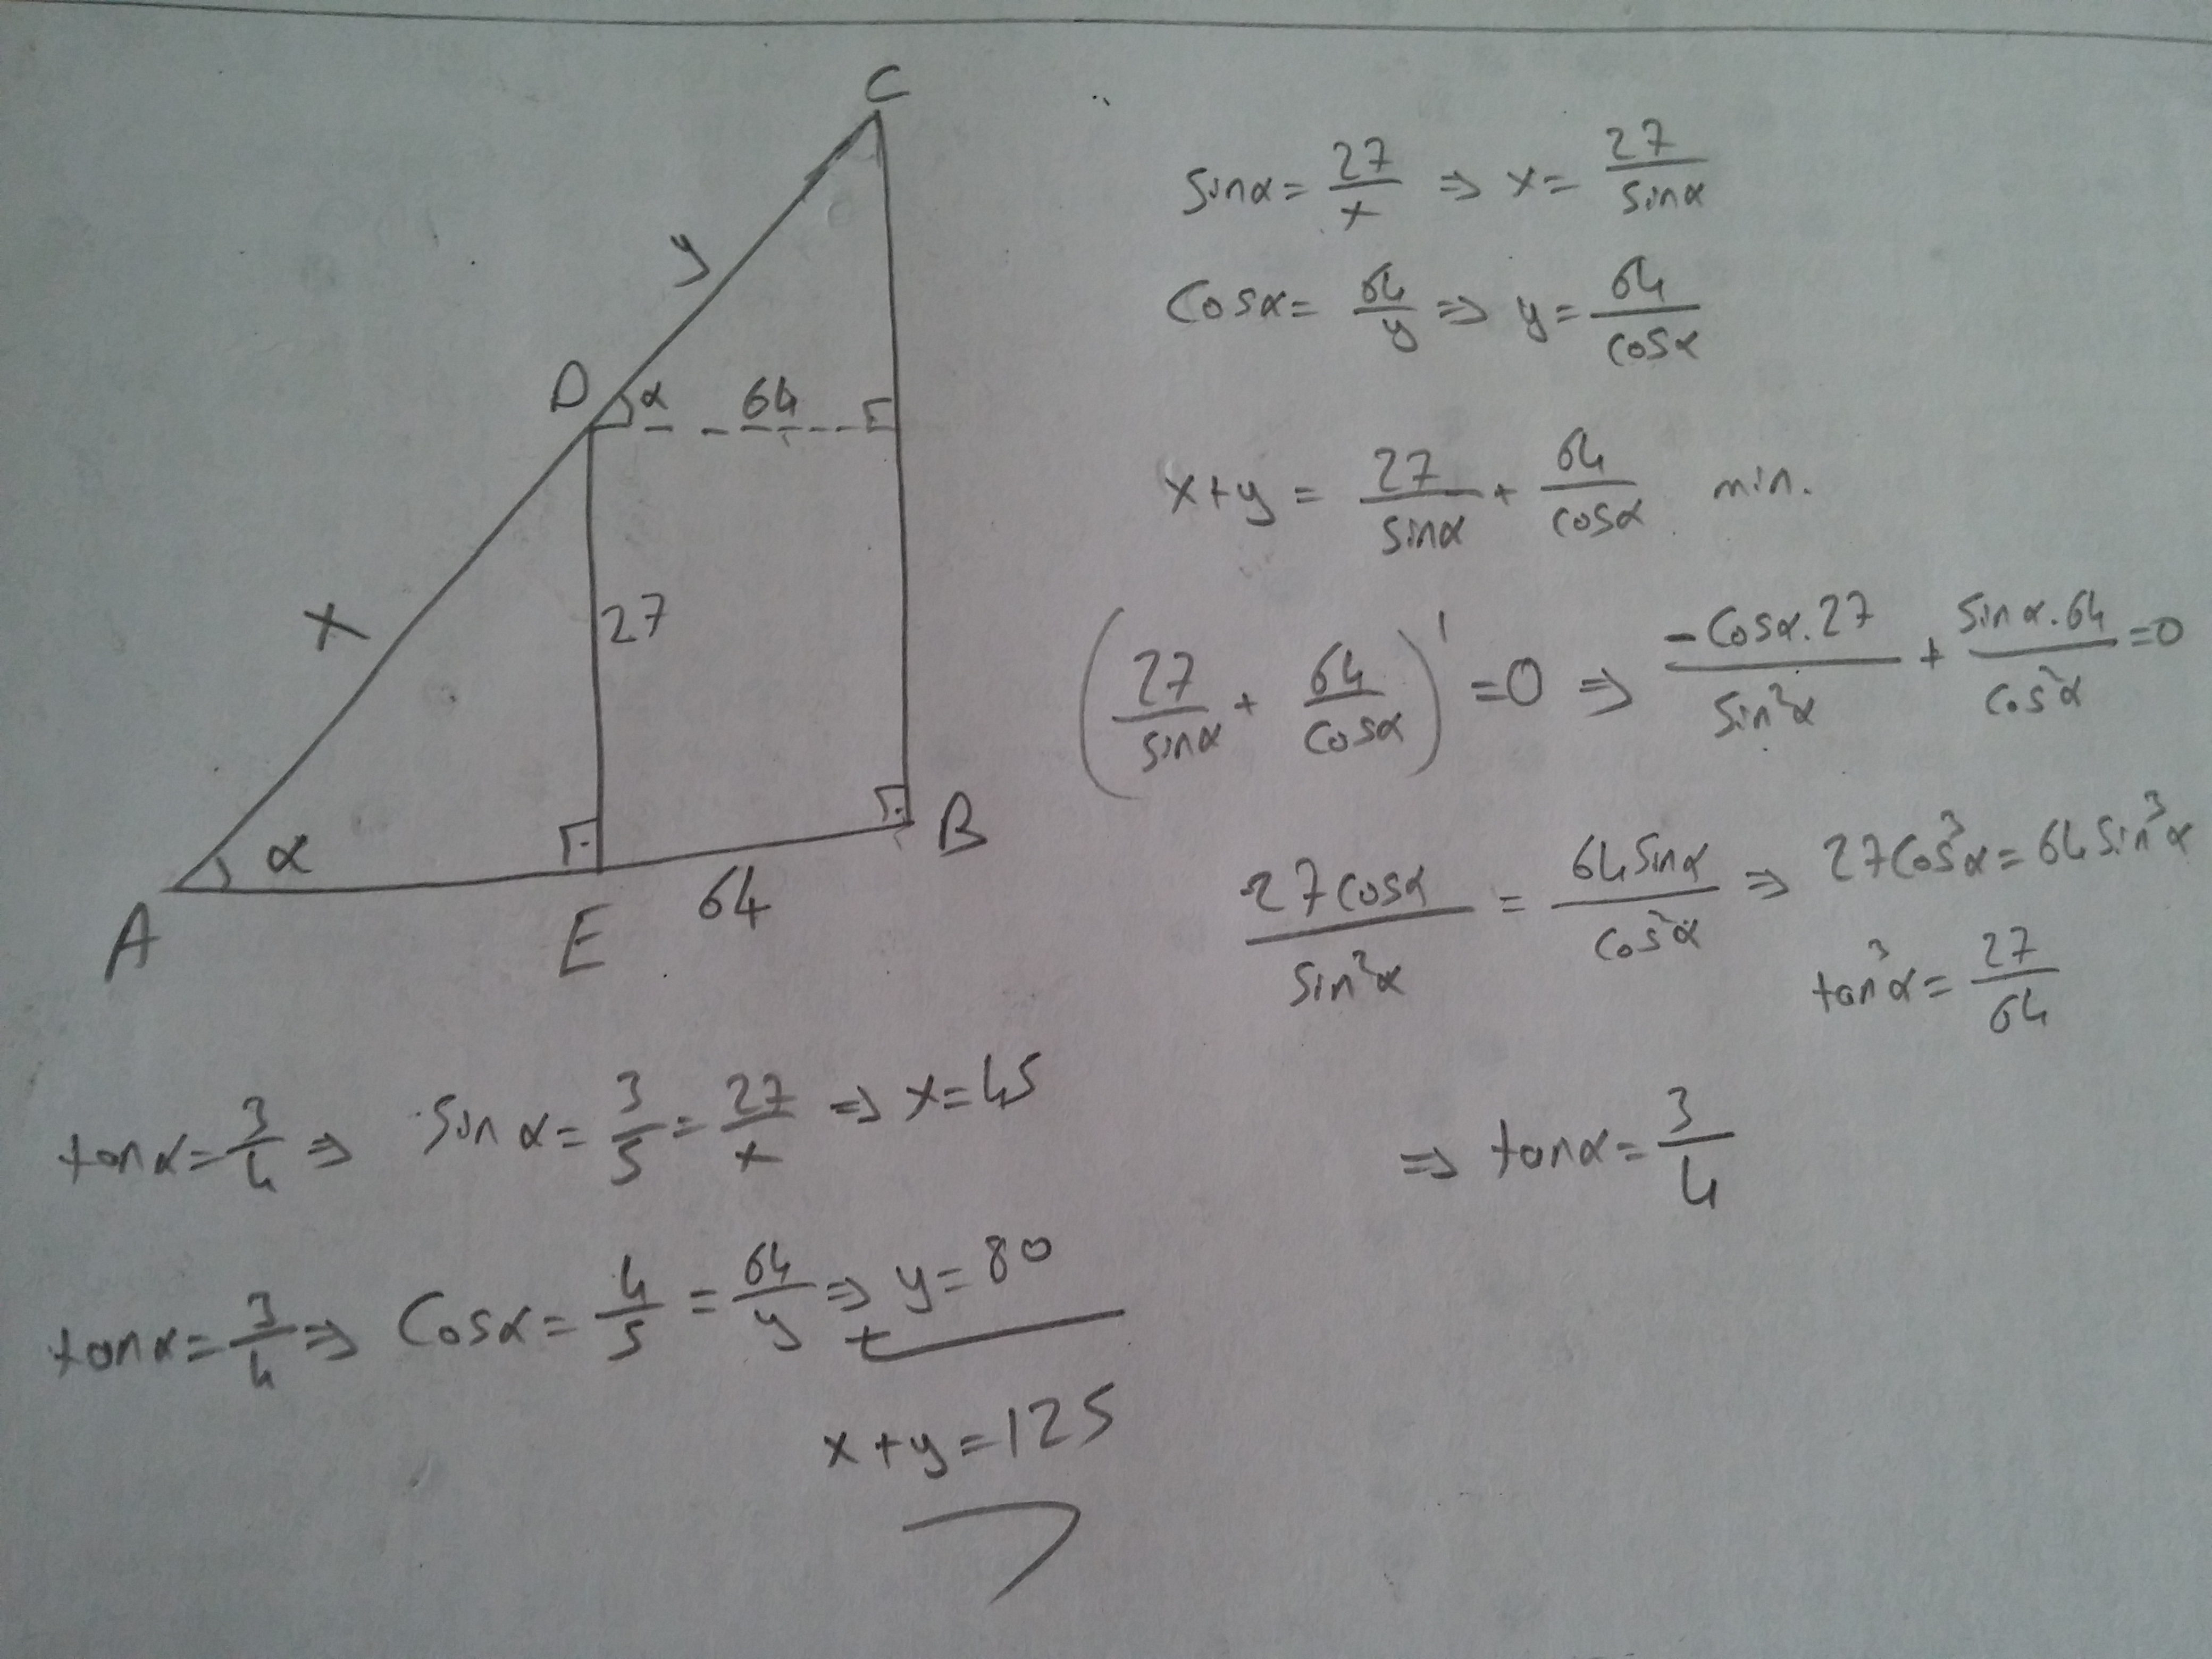 C
y
D α 64
x
27
α
A E 64 B
sinα = 27/x ⇒ x = 27/sinα
Cosα = 64/y ⇒ y = 64/cosα
x+y = 27/sinα + 64/cosα min.
(27/sinα + 64/cosα)' = 0 ⇒ -Cosα.27/sin²α + sinα.64/cos²α = 0
27cosα/sin²α = 64sinα/cos²α ⇒ 27cos³α = 64sin³α
tan³α = 27/64
⇒ tanα = 3/4
tanα = 3/4 ⇒ sinα = 3/5 = 27/x ⇒ x = 45
tanα = 3/4 ⇒ Cosα = 4/5 = 64/y ⇒ y = 80
+
x+y = 125